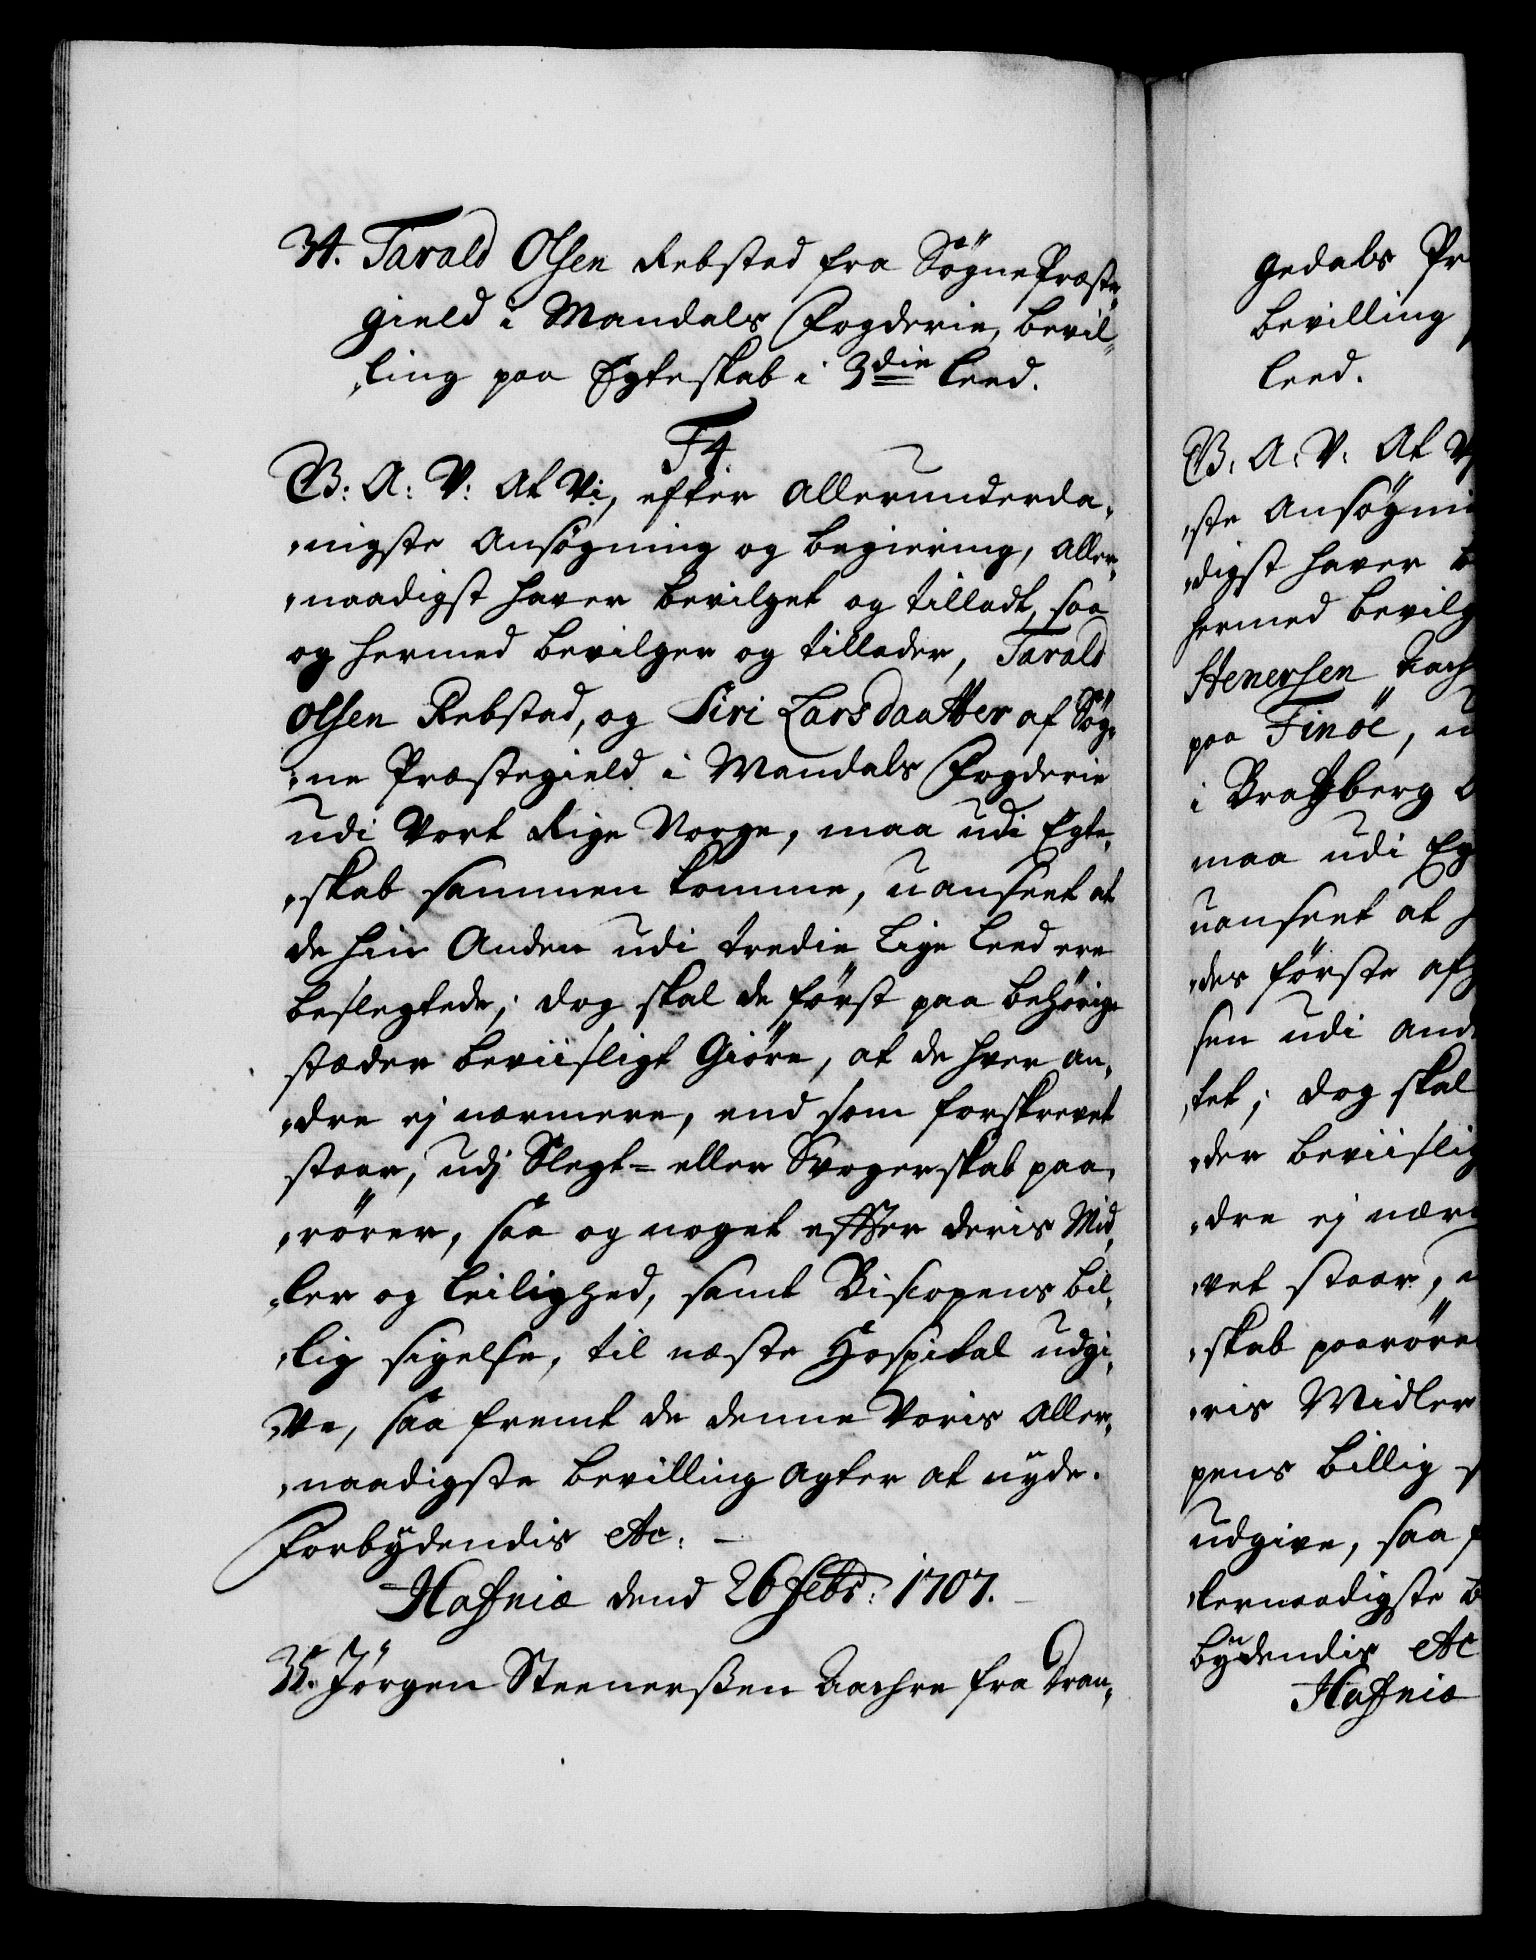 34. Tarald Olsen Rebstad fra Søgne Præste,
gield i Mandals Fogderie, bevil,
,ling paa Egteskab i 3die Leed.
F4.
G: A: V: At Vi, efter allerunderda,
,nigste Ansøgning og begiering, aller,
,naadigst hafver bevilget og tilladt, saa
og hermed bevilger og tillader, Tarald
Olsen Rebstad, og Siri Larsdaatter af Søg,
,ne Præstegield i Mandals Fogderie
udi Vort Rige Norge, maa udi Egte,
,skab sammen komme, uanseet at
de hin Anden udi tredie Lige Leed ere
beslegtede; dog skal de først paa behørige
stæder beviisligt Giøre, at de hver an,
,dre ej nærmere, end som forskrevet
staar, udj Slegt- eller Svogerskab paa,
,rører, saa og noget effter deris Mid,
,ler og Leilighed, samt Biscopens bil,
,lig sigelse, til næste Hospital udgi,
,ve, saa fremt de denne Voris aller,
,naadigste bevilling agter at nyde.
Forbÿdendis etc: –
Hafniæ dend 26 Febr: 1707.
35. Jørgen Steenerßen Aachre fra Dran,
gedals Pr
bevilling
Leed.
G: A: V: At V
,ste Ansøgni
,digst haver b
hermed bevilg
Stenersen Aach
paa Finöe, u
i Bratzberg
maa udi Eg
uanseet at h
,des første afg
sen udi and
,tet; dog skal
,der beviislig
,dre ej nær
,vet staar, u
,skab paarøre
,ris Midler
pens billig s
udgive, saa f
,lernaadigste b
bÿdendis etc
Hafniæ